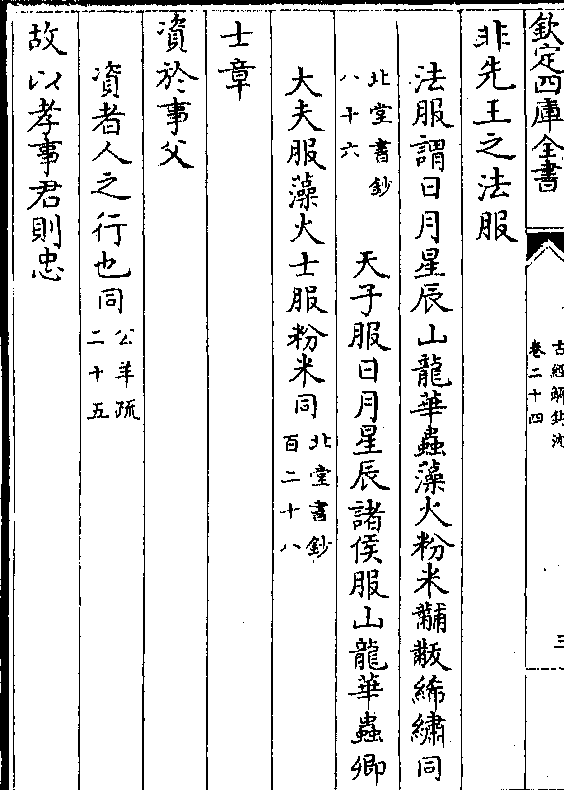 欽定四庫全書
古經解鉤沈
卷二十四
三
非先王之法服
法服謂日月星辰山龍華蟲藻火粉米黼黻絺繡同
北堂書鈔
八十六
天子服日月星辰諸侯服山龍華蟲卿
大夫服藻火士服粉米同
北堂書鈔
百二十八
士章
資於事父
資者人之行也同
公羊疏
二十五
故以孝事君則忠